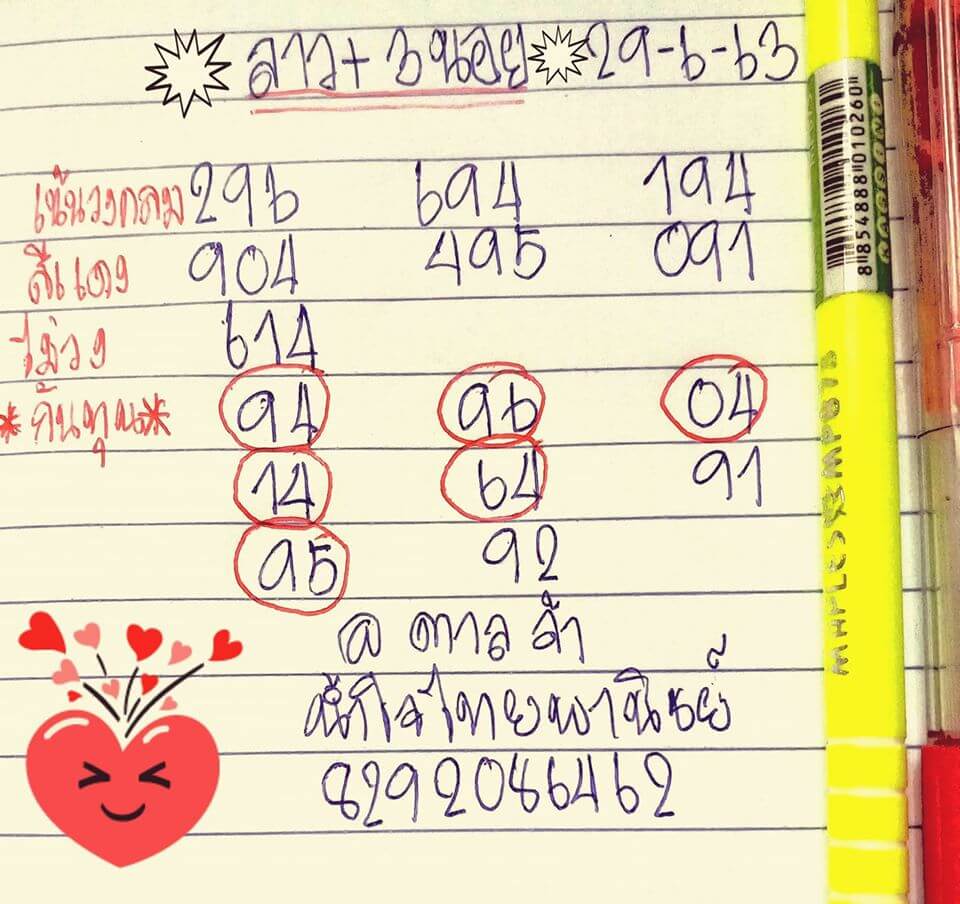 ลาว + 3 นอย 29-6-63
เน้นวงกลม 296 694 194
สีแดง 904 495 091
ไม่วง 614
*กันทุน* 94 96 04
14 64 91
95 92
@ ตาล ล่ำ
น้ำใจไทยพานิชย์
8292086462
8 854888 010260